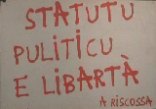 STATUTU
PULITICU
E LIBARTÀ
A RISCOSSA